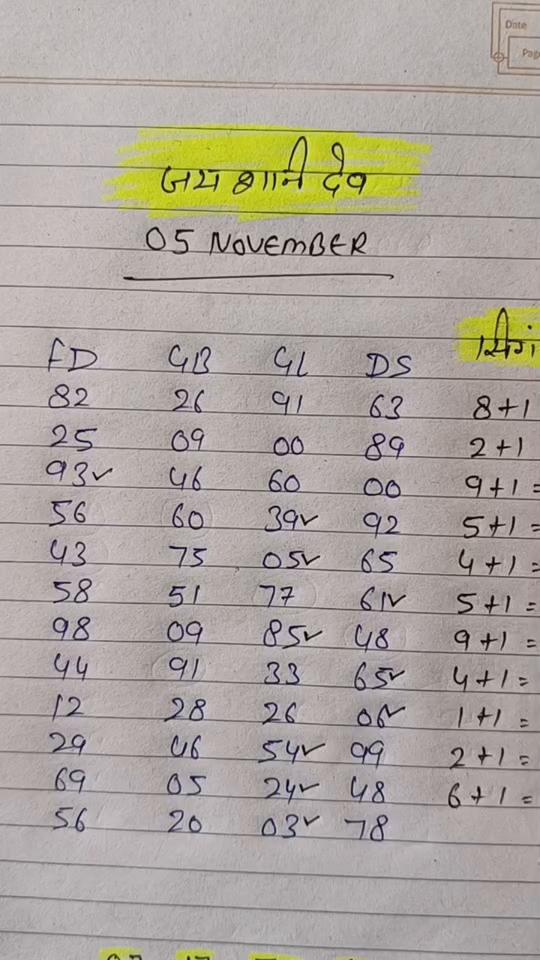 Date
Pag
जय शनि देव
05 NOVEMBER
FD GB GL DS
82 26 91 63 8+1
25 09 00 89 2+1
93✓ 46 60 00 9+1=
56 60 39✓ 92 5+1=
43 75 05✓ 65 4+1=
58 51 77 61✓ 5+1=
98 09 85✓ 48 9+1=
44 91 33 65✓ 4+1=
12 28 26 06✓ 1+1=
29 46 54✓ 99 2+1=
69 05 24✓ 48 6+1=
56 20 03✓ 78